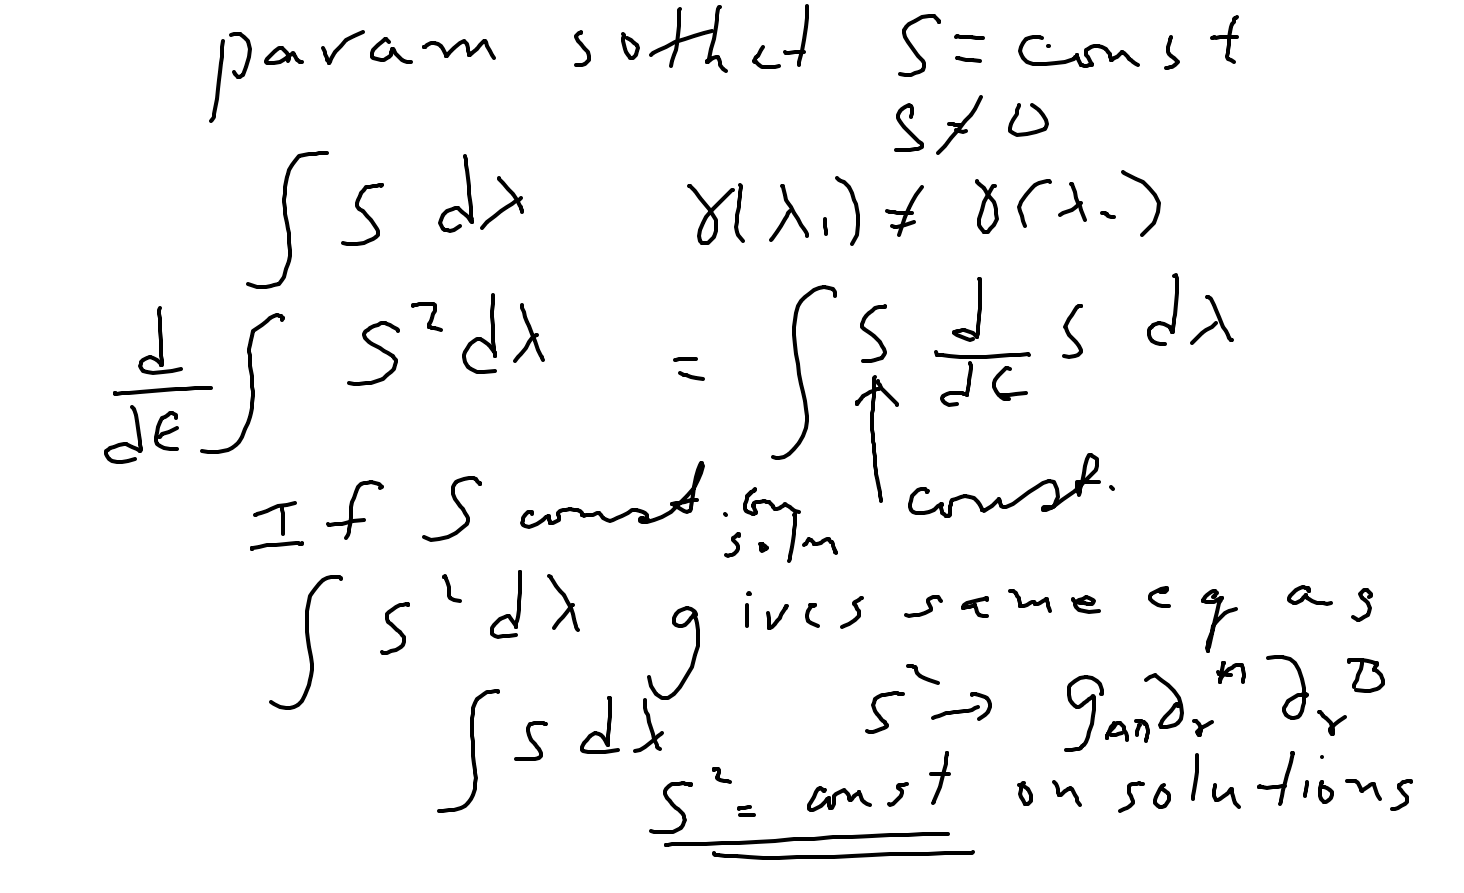 param so that S = const
S ≠ 0
∫ S dλ γ(λ₁) ≠ γ(λ₂)
d/dϵ ∫ S² dλ = ∫ S d/dϵ S dλ
If S const. on soln const.
∫ S² dλ gives same eq as
∫ S dλ S² → g_{AB} ∂_γ^A ∂_γ^B
S² = const on solutions